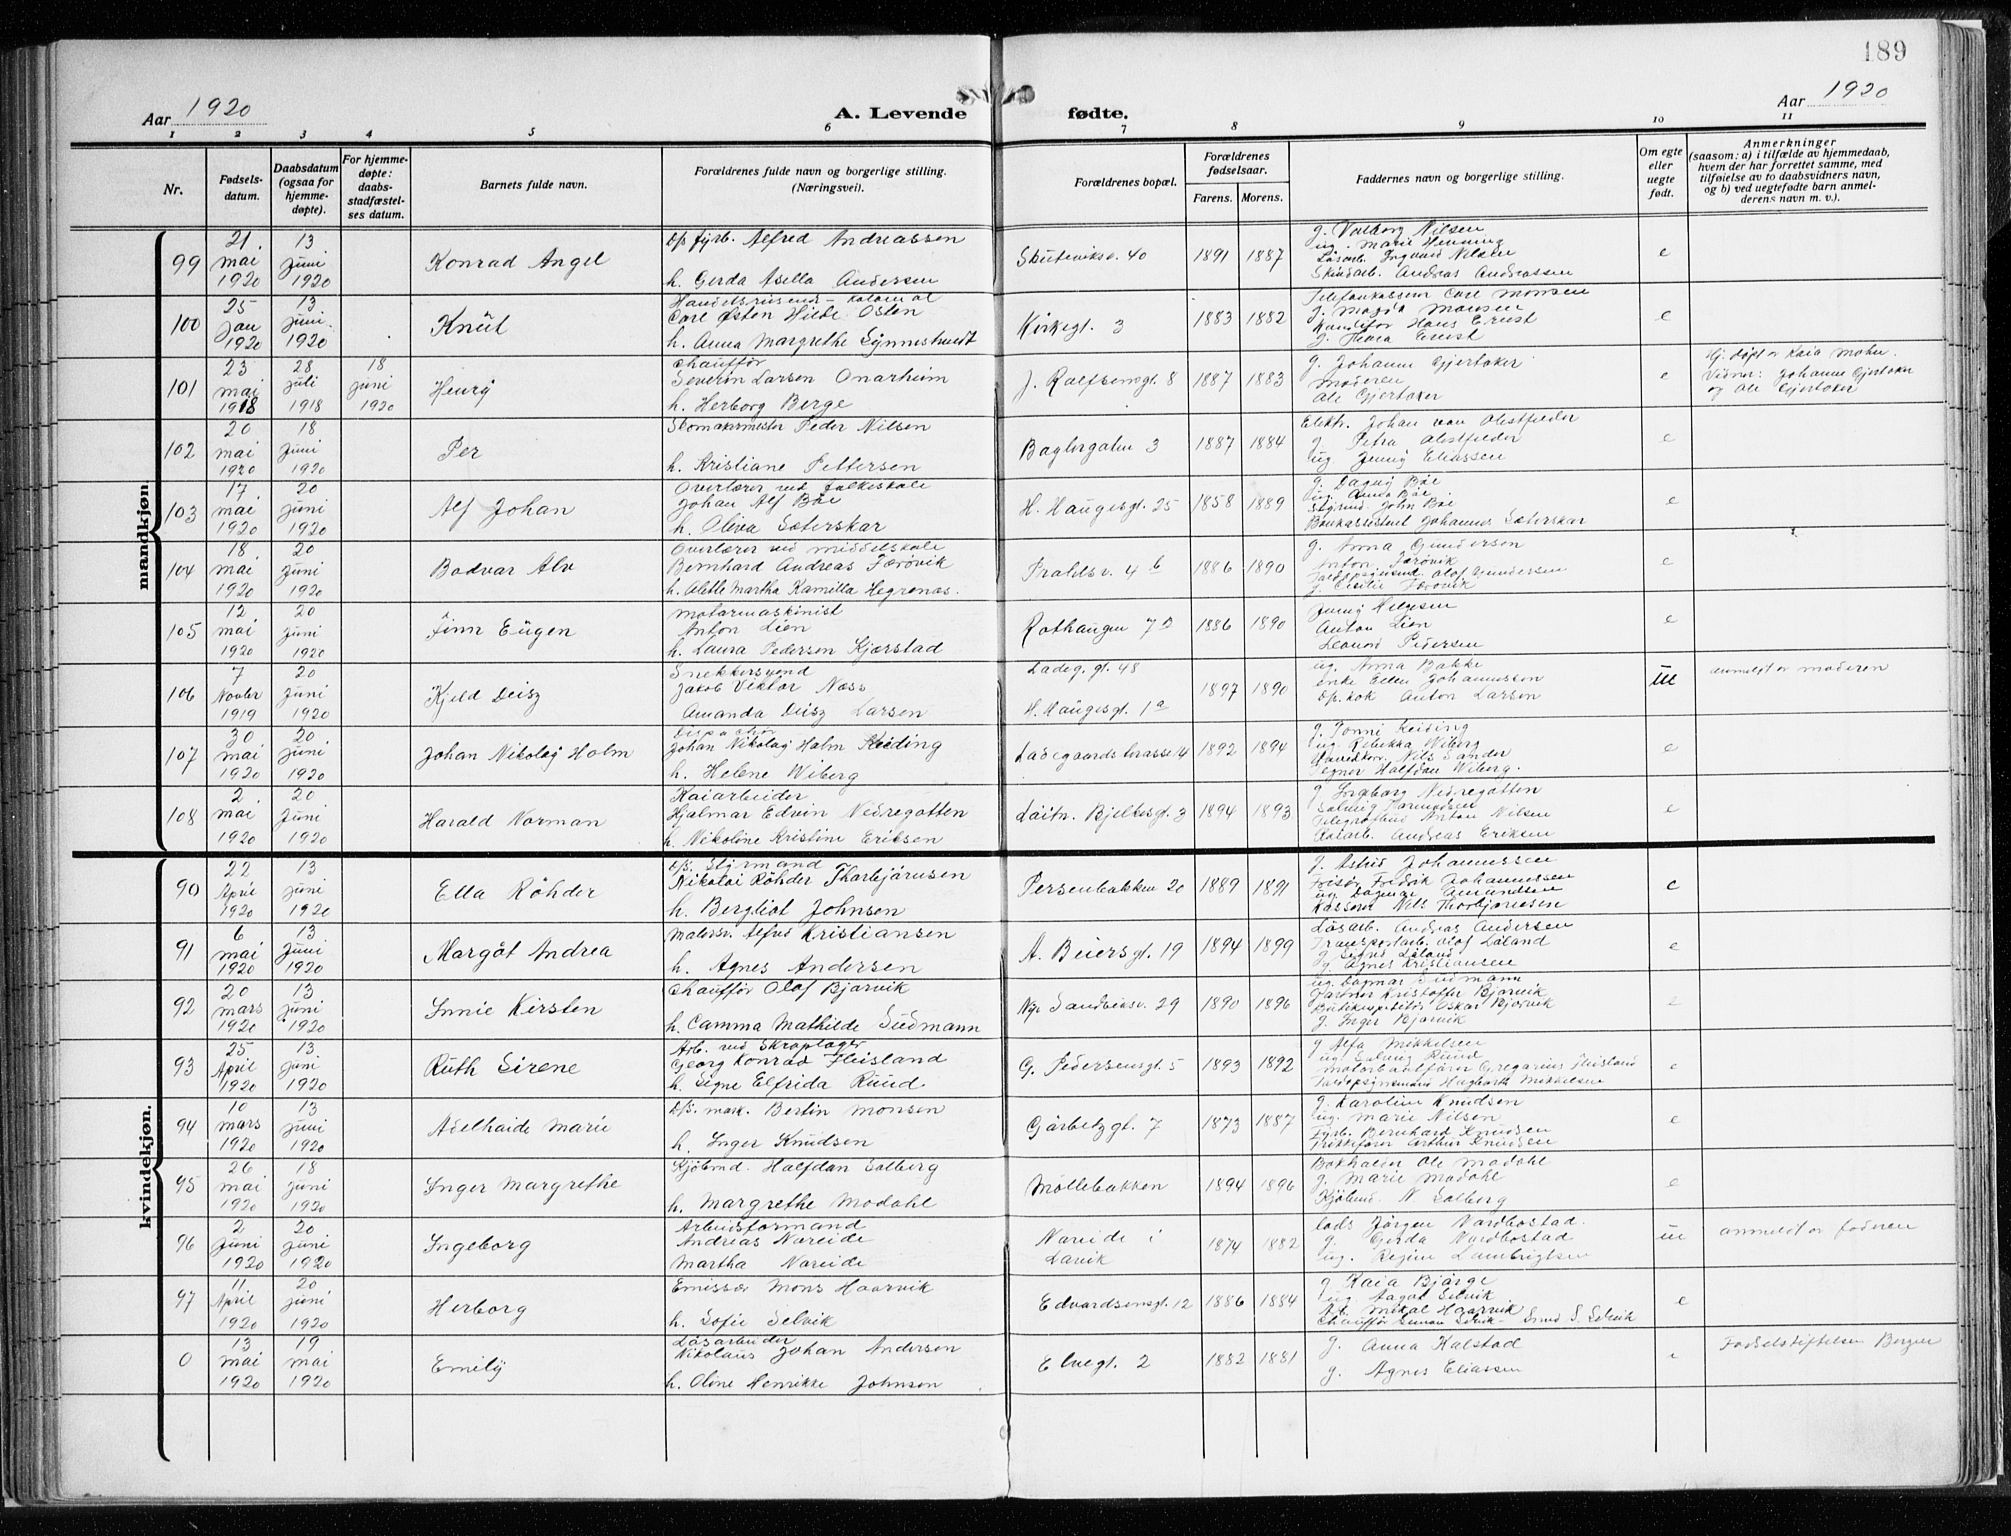 189
Aar 1920
A. Levende fødte.
Aar 1920
1 2 3 4 5 6 7 8 9 10 11
Nr.
Fødsels-
datum.
Daabsdatum
(ogsaa for
hjemme-
døpte).
For hjemme-
døpte:
daabs-
stadfæstel-
ses datum.
Barnets fulde navn.
Forældrenes fulde navn og borgerlige stilling.
(Næringsvei).
Forældrenes bopæl.
Forældrenes
fødselsaar.
Farens. Morens.
Faddernes navn og borgerlige stilling.
Om egte
eller
uegte
født.
Anmerkninger
(saasom: a) i tilfælde av hjemmedaab,
hvem der har forrettet samme, med
tilføielse av to daabsvidners navn,
og b) ved uegtefødte barn anmel-
derens navn m. v.).
mandkjøn.
99
21
mai
1920
13
juni
1920
Konrad Angel
D/s fyrb. Alfred Andreassen
h. Gerda Asella Andersen
Skuteviksv. 40
1891 1887
g. Valborg Nilsen
ug. Marie Henning
Løsarb. Ingvald Nilsen
Andreas Andreassen
e
100
25
jan
1920
13
juni
1920
Knut
Carl Østen Hilde Osten
h. Anna Margrethe Synnestvedt
Kirkegt. 3
1883 1882
Telefonkasserer Carl Monsen
g. Monsen
Konditor Hans Ernst
g. Ernst
e
101
23
mai
1918
28
juli
1918
18
juni
1920
Henry
Chauffør
Severin Larsen Onarheim
h. Herborg Berge
J. Rolfsensgt. 8
1887 1883
g. Johanne Gjertaker
Moderen
Ole Gjertaker
e
Hj. døpt av Kaia Mohn
Vidner: Johanne Gjertaker
og Ole Gjertaker
102
20
mai
1920
18
juni
1920
Per
Skomakermester Peder Nilsen
h. Kristiane Pettersen
Baglergaten 3
1887 1884
Elektr. Johan von Obstfelder
g. Petra Obstfelder
ug Jenny Eliassen
e
103
17
mai
1920
20
juni
1920
Alf Johan
Overlærer ved folkeskole
Johan Alf Bøe
h. Oliva Sæterskar
H. Haugesgt. 25
1858 1889
g. Dagny Bøe
ug. Anna Bøe
John Bøe
Bankassistent Johannes Sæterskar
e
104
18
mai
1920
20
juni
1920
Bodvar Alv
Overlærer ved middelskole
Bernhard Andreas Færøvik
h. Alette Martha Kamilla Hegrenæs.
Proldsv. 4 b
1886 1890
g. Anna Gundersen
Anton Færøvik
Olaf Gundersen
g. Cecilie Færøvik
e
105
12
mai
1920
20
juni
1920
Finn Eugen
Motormaskinist
Anton Lien
h. Laura Pedersen Kjærstad
Rothaugen 7 B
1886 1890
Jenny Helgesen
Anton Lien
Leonard Pedersen
e
106
7
Novbr
1919
20
juni
1920
Kjeld Deisz
Snekkersvend
Jakob Viktor Næss
Amanda Deisz Larsen
Ladeg. gt. 48
H. Haugesgt. 1 a
1897 1890
ug. Anna Bakke
enke Ellen Johannessen
Dp. kok Anton Larsen
ue
anmeldt av moderen
107
30
mai
1920
20
juni
1920
Johan Nikolay Holm
Johan Nikolay Holm Keiding
h. Helene Wiberg
Ladegaards terasse 4
1892 1894
g. Tonni Keiding
ug. Rebekka Wiberg
Nils Sander
Tegner Halfdan Wiberg.
e
108
2
mai
1920
20
juni
1920
Harald Norman
Kaiarbeider
Hjalmar Edvin Nedregotten
h. Nikoline Kristine Eriksen
Løitn. Bjelkesgt. 3
1894 1893
g. Ingeborg Nedregotten
Solveig
Telegrafbud Anton Nilsen
Kaiarb. Andreas Eriksen
e
kvindekjøn.
90
22
April
1920
13
juni
1920
Ella Röhder
D/s. Styrmand
Nikolai Röhder Thorbjørnsen
h. Bergliot Johnsen
Persenbakken 20
1889 1891
g. Astrid Johannessen
Frisør Fredrik Johannessen
ug. Dagmar Amundsen
Kasserer Nils Thorbjørnsen
e
91
6
mai
1920
13
juni
1920
Margot Andrea
Malersv. Alfred Kristiansen
h. Agnes Andersen
A. Beiersgt. 19
1894 1899
Løsarb. Andreas Andersen
Transportarb. Olaf Løland
g Løland
g. Agnes Kristiansen
e
92
20
mars
1920
13
juni
1920
Innie Kirsten
Chauffør Olaf Bjørvik
h. Camma Mathilde Sudmann
Nye Sandviksv. 29
1890 1896
ug Dagmar Sudmann
Gartner Kristoffer Bjørvik
Oskar Bjørvik
g. Inger Bjørvik
e
93
25
April
1920
13
juni
1920
Ruth Sirene
Arb. ved Skraplager
Georg Konrad Fleisland
h. Signe Elfrida Ruud
G. Pedersensgt. 5
1893 1892
g Alfa Mikkelsen
ug. Solveig Ruud
Motorbaatfører Gregarius Fleisland
Hagbarth Mikkelsen
e
94
10
mars
1920
13
juni
1920
Adelhaide Marie
D/s. mask. Bertin Monsen
h. Inger Knudsen
Görbitzgt. 7
1873 1887
g. Karoline Knudsen
ug. Marie Nilsen
Fyrb. Bernhard Knudsen
Trikkefører Arthur Knudsen
e
95
26
mai
1920
18
juni
1920
Inger Margrethe
Kjøbmd. Halfdan Solberg
h. Margrethe Modahl
Møllebakken
1894 1896
Bokholder Ole Modahl
g. Marie Modahl
Kjøbmd. N Solberg
e
96
2
Juni
1920
20
juni
1920
Ingeborg
Arbeidsformand
Andreas Nareide
Martha Nareide
Nareide i
Lavik
1874 1882
Lods Jörgen Nordbostad.
g. Gerda Nordbostad
ug. Regine Lambrigtsen
ue
anmeldt av faderen
97
11
April
1920
20
juni
1920
Herborg
Emissær Mons Haarvik
h. Sofie Selvik
Edvardsensgt. 12
1886 1884
g Kaia Bjørge
ug Aagot Selvik
Arb. Mikal Haarvik
Chauffør Simon Selvik - Smed S. Selvik
e
0
13
mai
1920
19
mai
1920
Emily
Løsarbeider
Nikolaus Johan Andersen
h. Oline Henrikke Johnson
Elvegt. 2
1882 1881
g. Anna Kalstad
g. Agnes Eliassen
e
Fødselstiftelsen Bergen